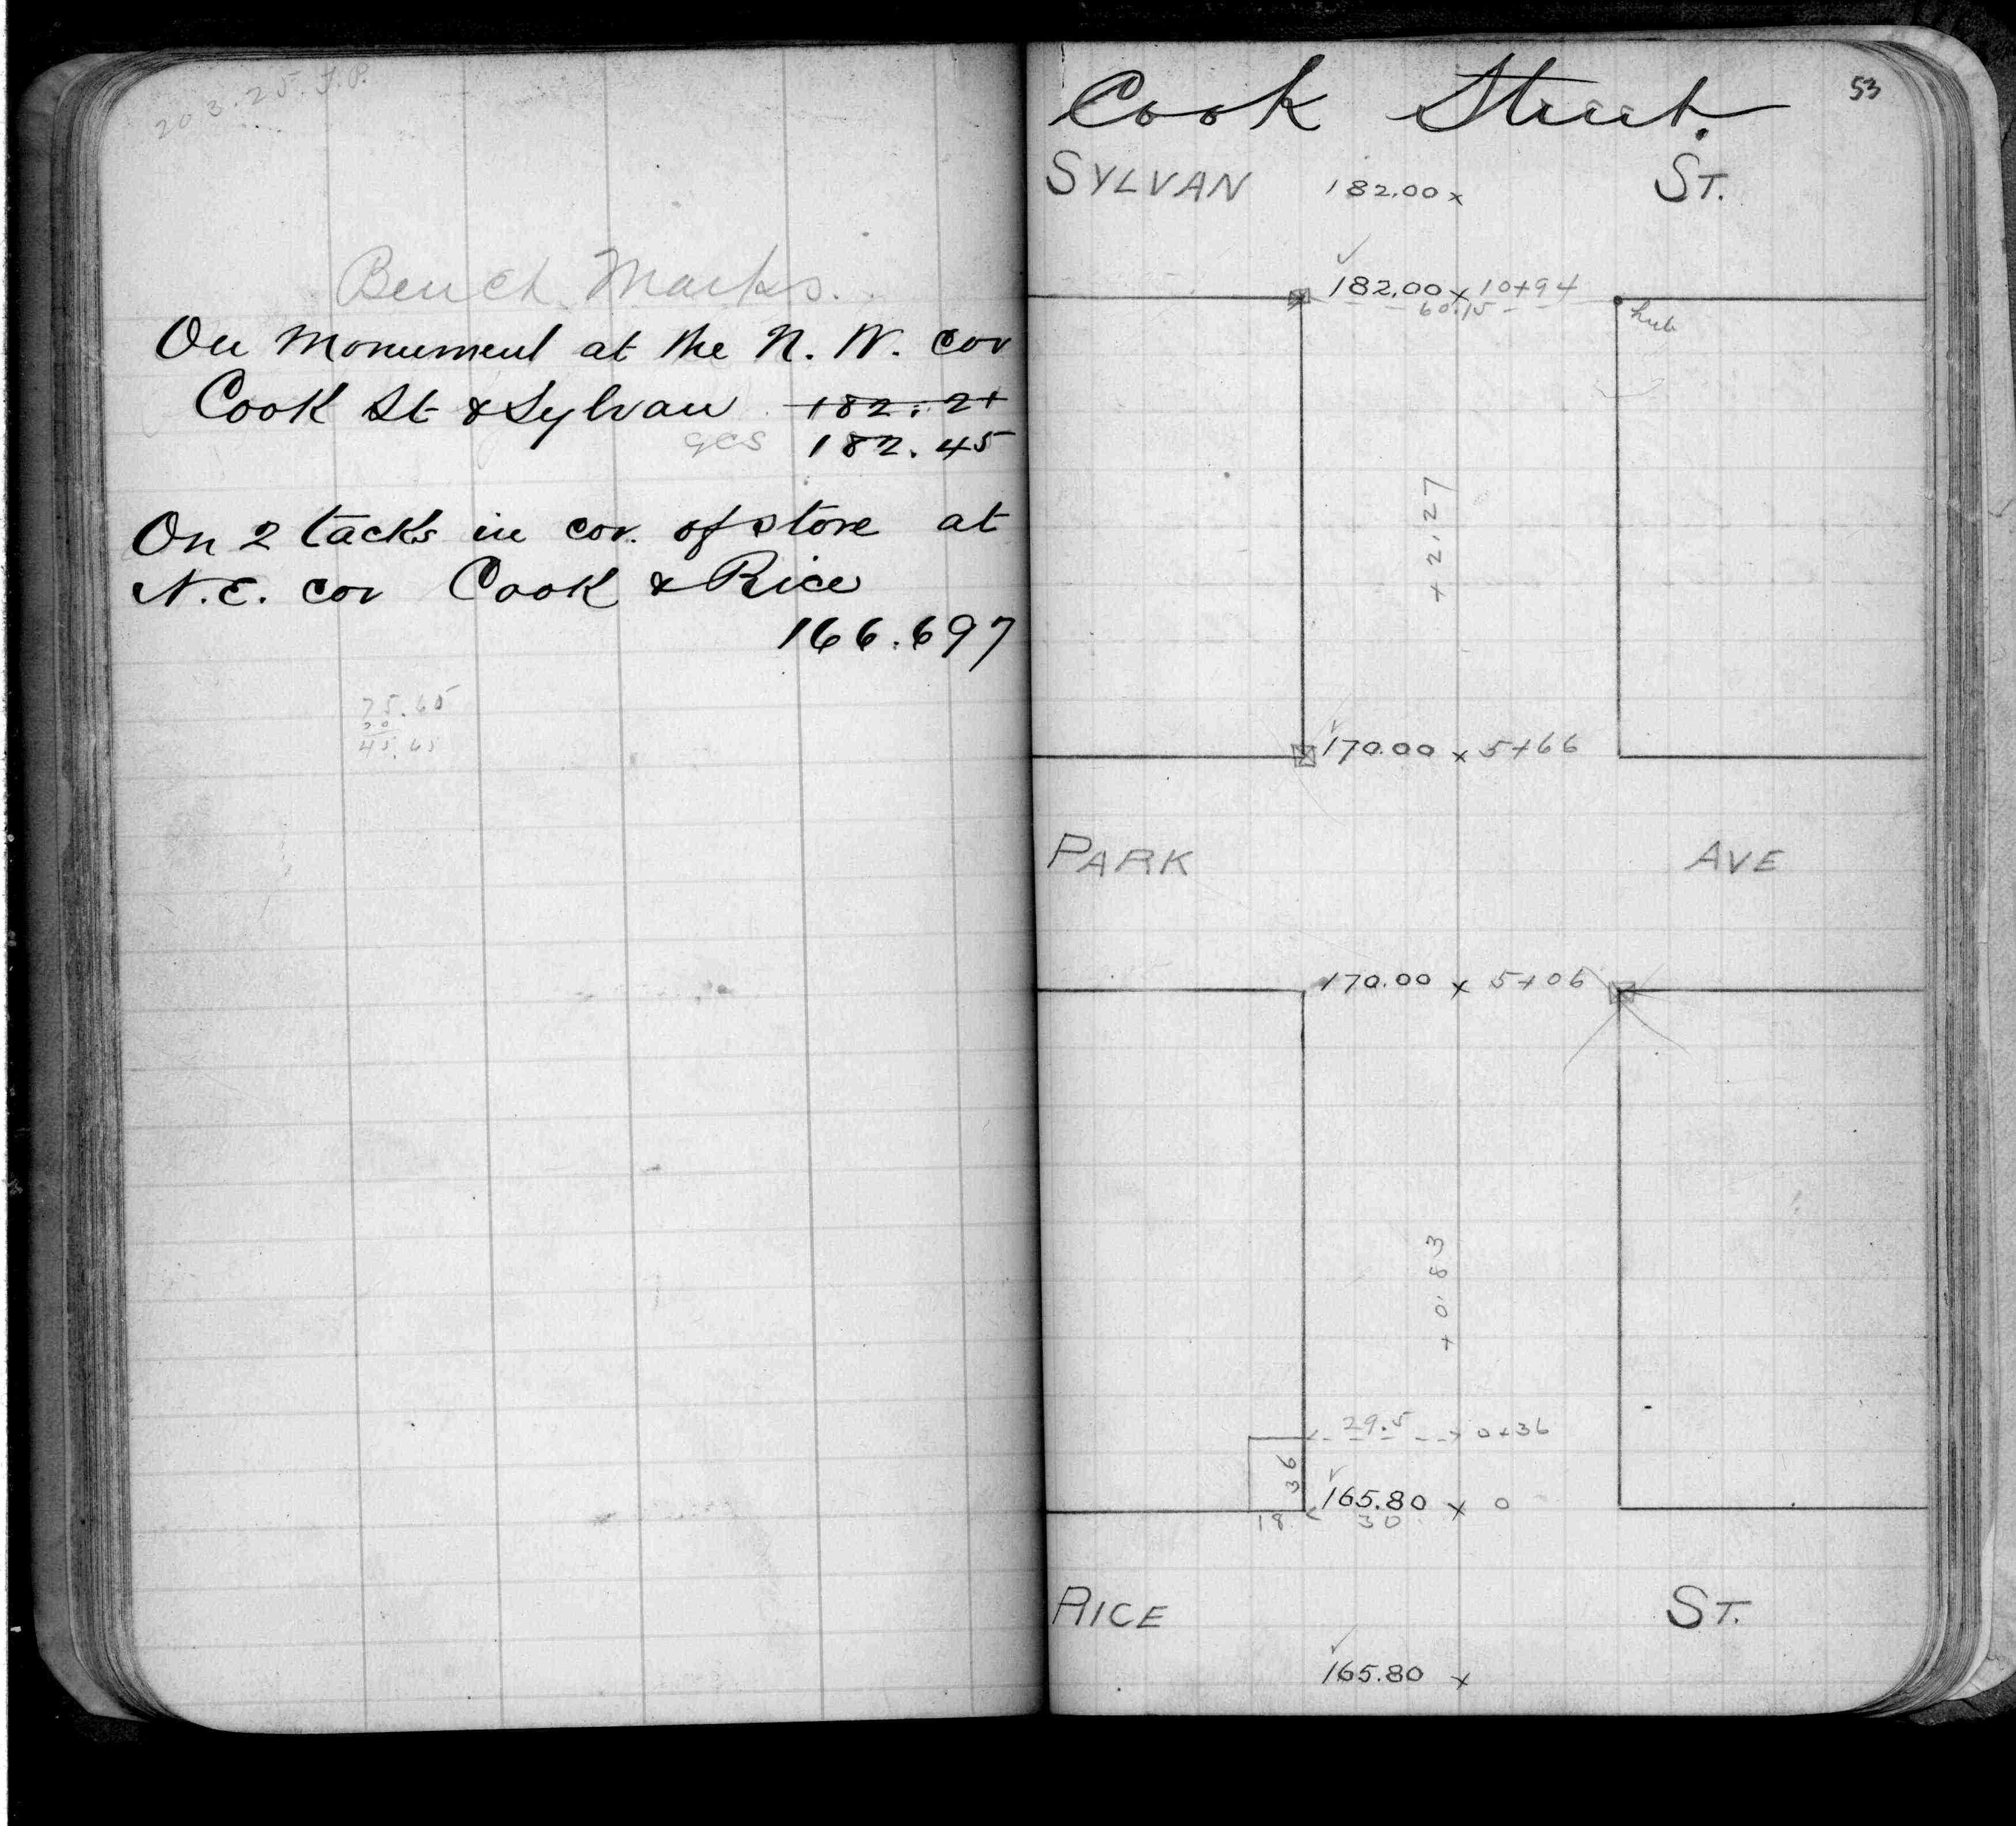 203.25. T.P.
Bench Marks.
On Monument at the N. W. cor
Cook St & Sylvan 182.21
GCS 182.45
On 2 tacks in cor. of store at
N.E. cor Cook & Rice
166.697
75.65
30
45.65
53
Cook Street.
SYLVAN 182.00 x ST.
182.00 x 10+94
60.15
hub
+2.27
170.00 x 5+66
PARK AVE
170.00 x 5+06
+0.83
29.5 0+36
36
165.80 x 0
18 30
RICE ST.
165.80 x